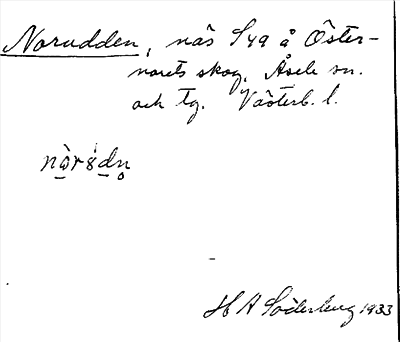 Norudden, näs S49 å Öster-
norets skog, Åsele sn.
och tg. Västerb. l.
H A Söderberg 1933